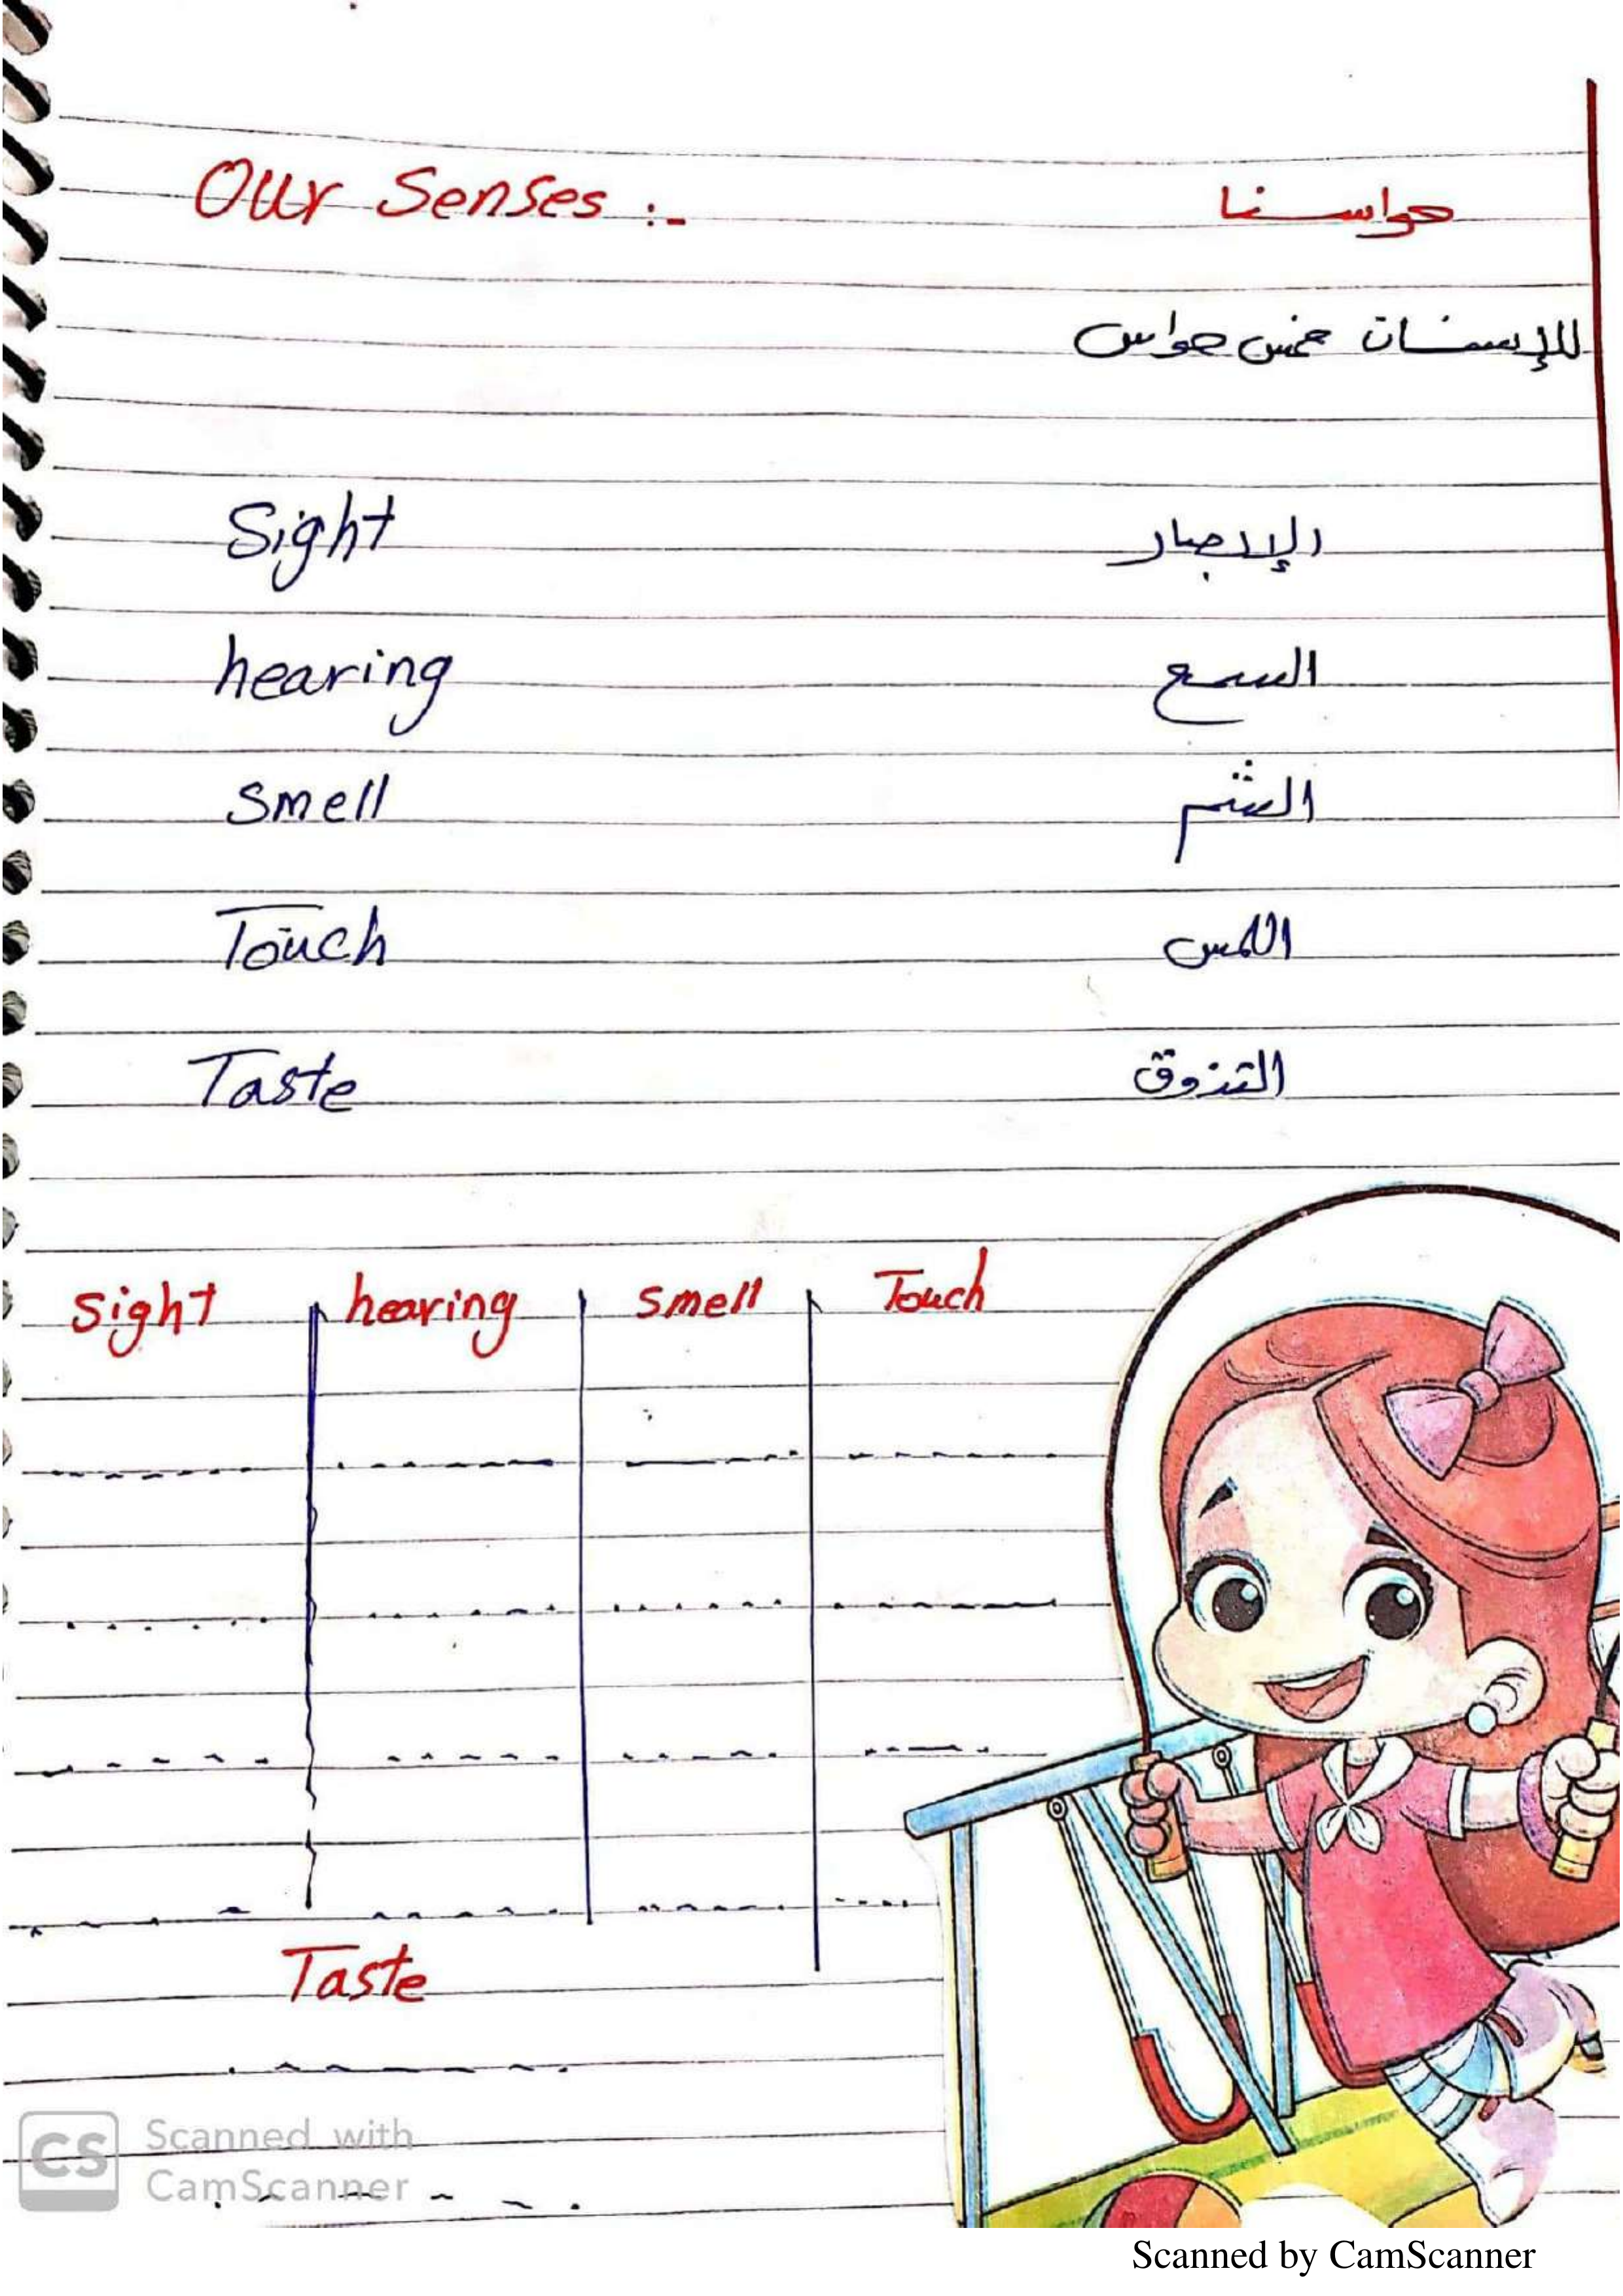 Our Senses :- حواسنا
للإنسان خمس حواس
Sight الإبصار
hearing السمع
smell الشم
Touch اللمس
Taste التذوق
sight hearing smell Touch
Taste
CS Scanned with
CamScanner
Scanned by CamScanner